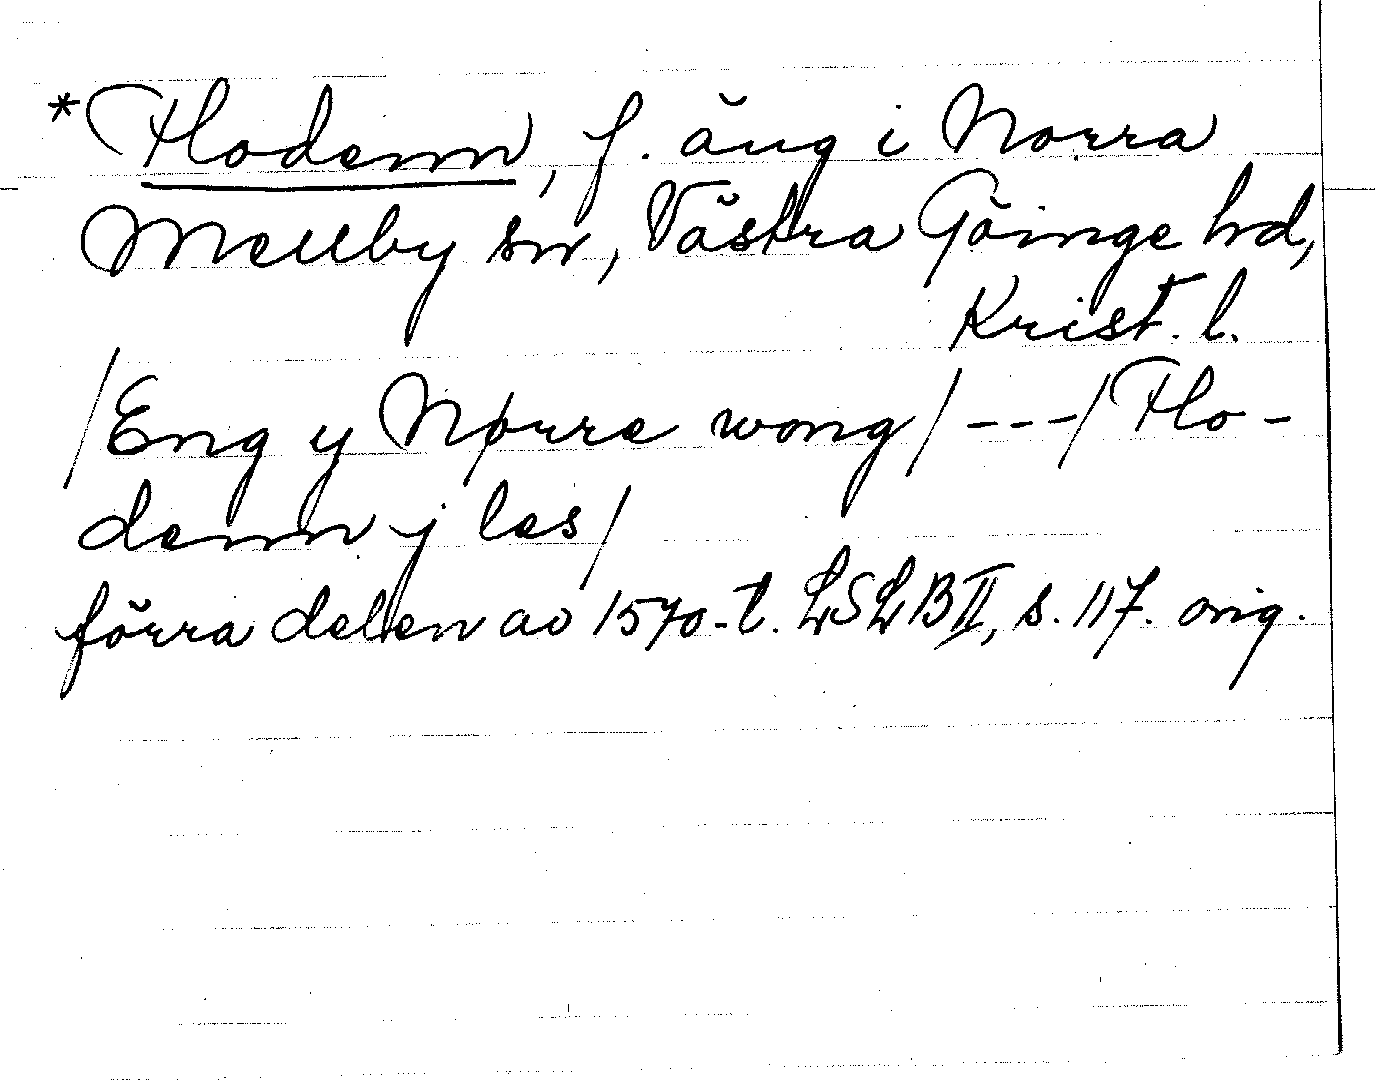 *Flodenn, f. äng i Norra
Mellby sn, Västra Göinge hd,
Krist. l.
/Eng y Nørre wong/---/Flo-
denn j les/
förra delen av 1570-t. LSLB II, s. 117. orig.